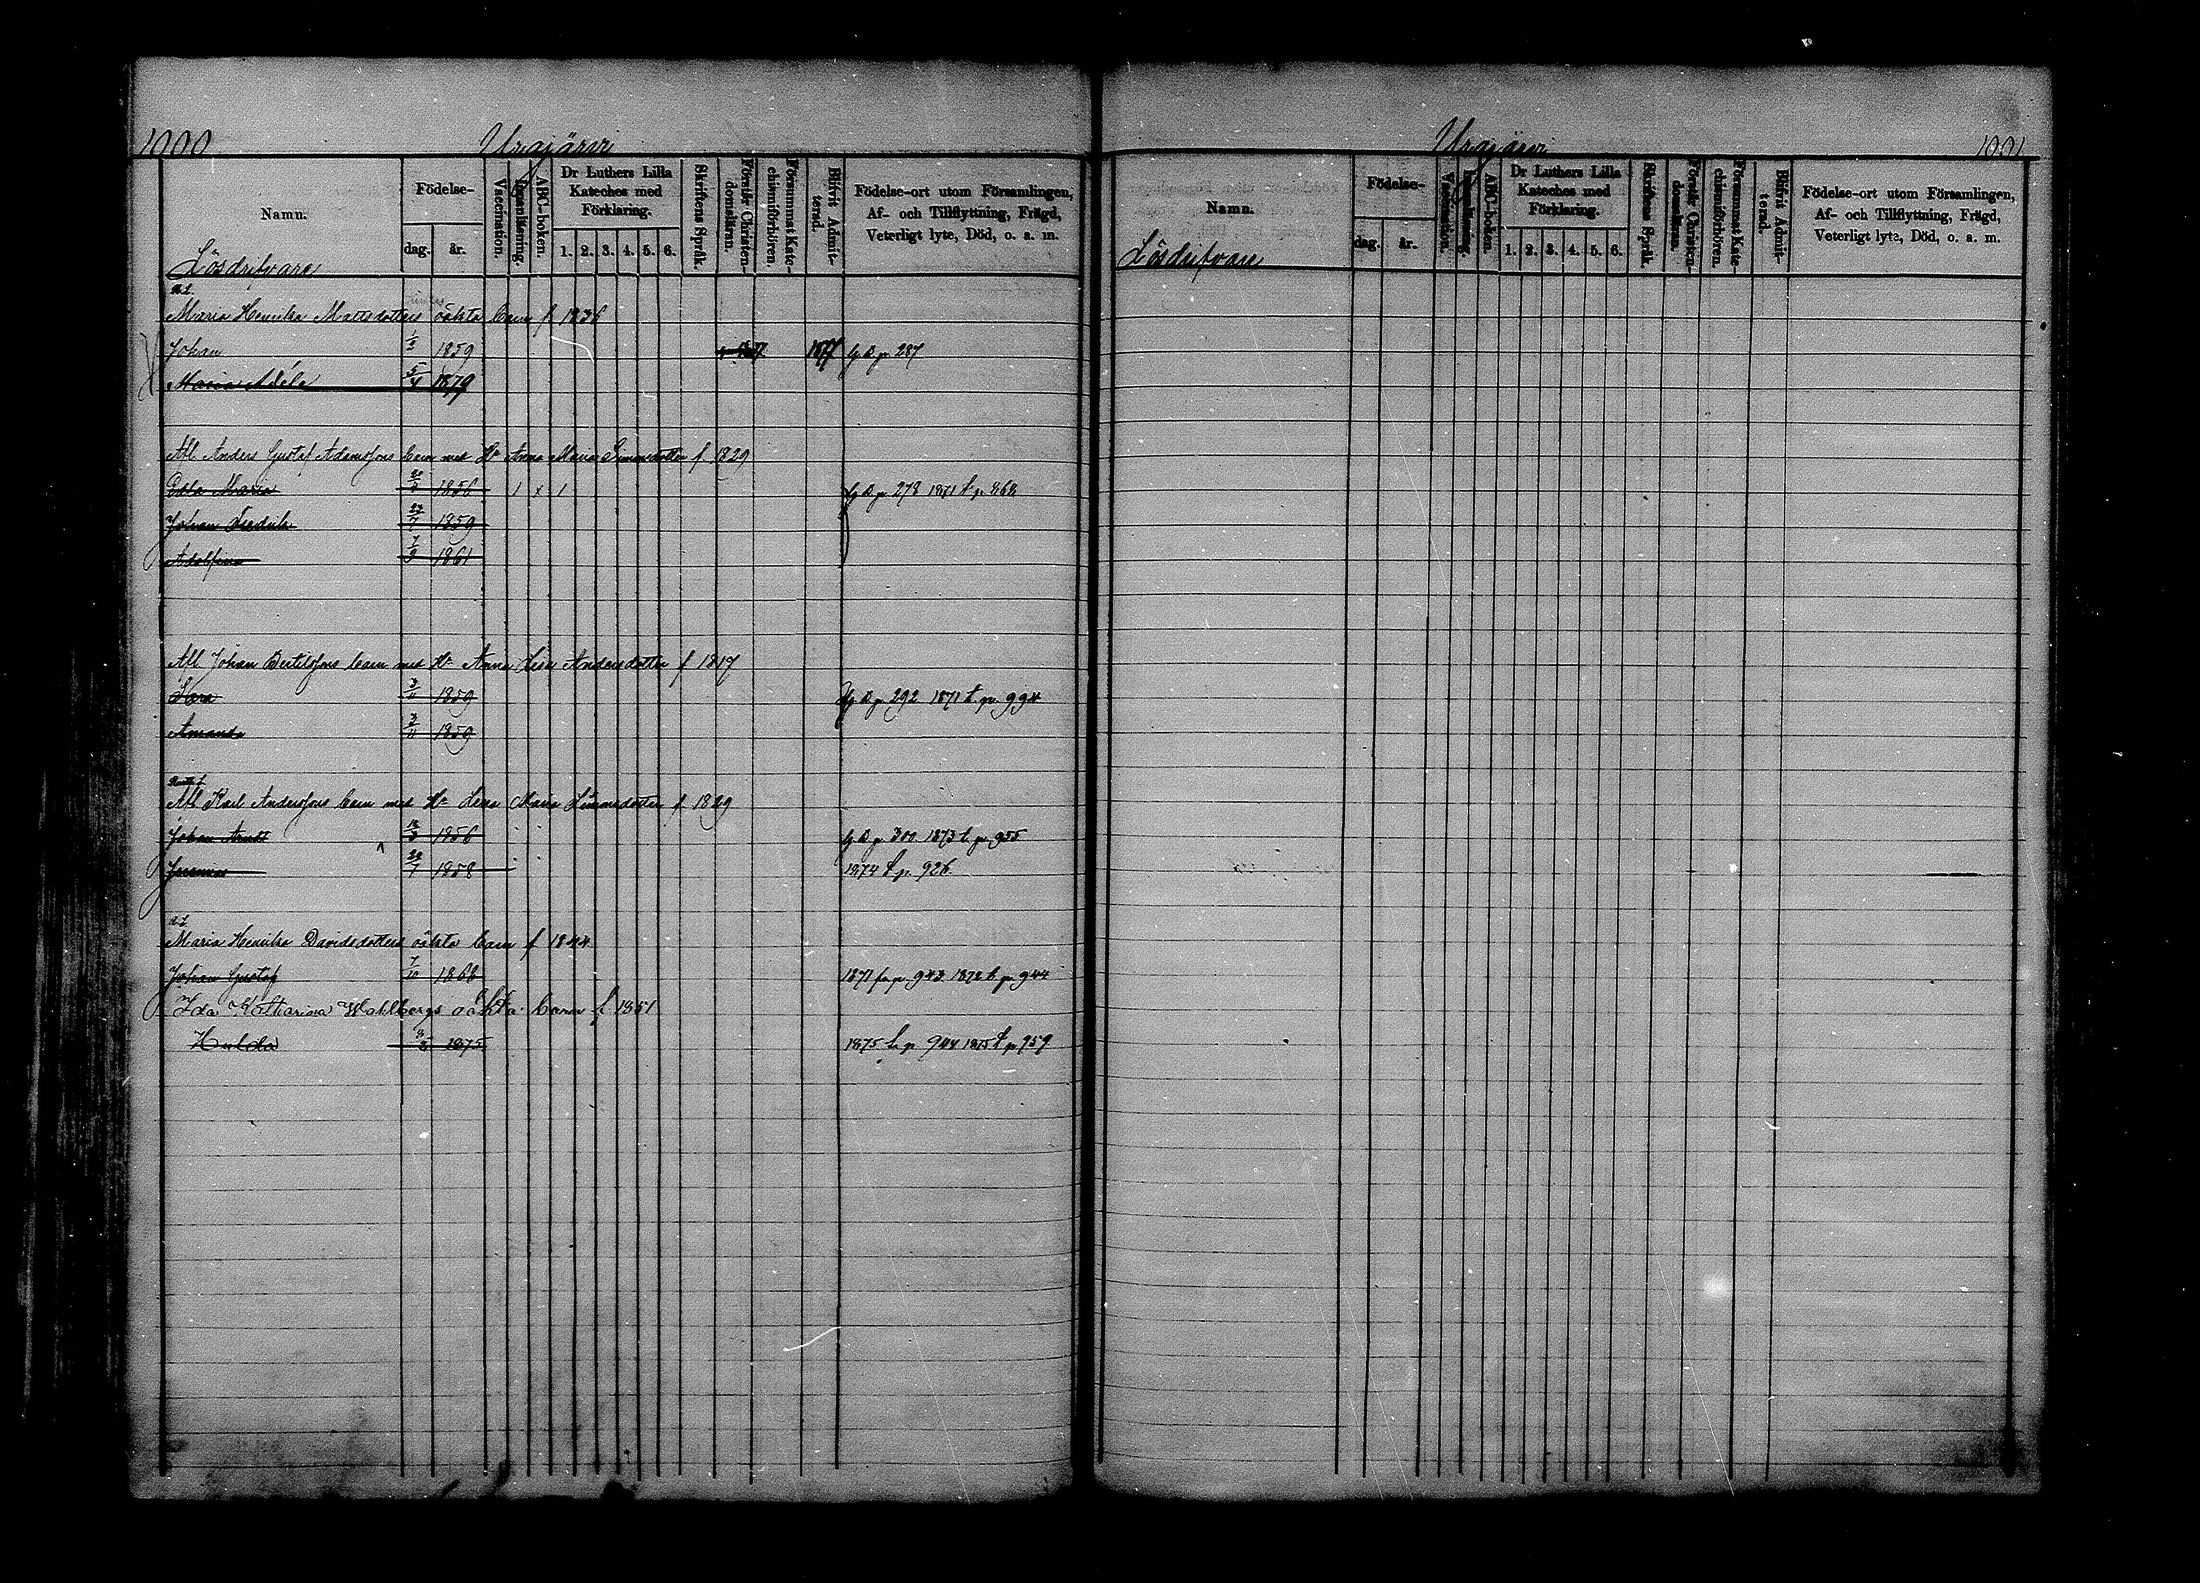 1000 Urajärvi
Namn. Födelse- dag. år. Vaccination. Innanläsning. ABC-boken. Dr Luthers Lilla Kateches med Förklaring. 1. 2. 3. 4. 5. 6. Skriftens Språk. Förstår Christendomsläran. Försummat Katechismiförhören. Blifvit Admitterad. Födelse-ort utom Församlingen, Af- och Tillflyttning, Frägd, Veterligt lyte, Död, o. a. m.
Lösdrifvare
Maria Henrika Mattsdotters oäkta barn f 1836
Johan 1859 1877 q. B. p. 287
Maria Adéle 5/4 1879
Afl. Anders Gustaf Adamssons barn med H:u Anna Maria Simonsdotter f. 1829
Edla Maria 1856 1 x 1 q. B. p. 278 1871 t. p. 868
Johan Fredrik 23/7 1859
Adolfina 7/9 1861
Afl. Johan Bertilssons barn med H:u Anna Lisa Andersdotter f 1817
Sara 3/11 1859 q. B. p. 292 1871 t. p. 994
Amanda 3/11 1859
Afl. Karl Anderssons barn med H:u Lena Maria Simonsdotter f. 1829
Johan Arndt 1856 q. B. p. 301. 1873 t. p. 955
Jeremias 1858 1874 t. p. 926.
Maria Henrika Davidsdotters oäkta barn f 1844
Johan Gustaf 7/10 1868 1871 fr. p. 943. 1872 t. p. 944
Ida Katharina Wahlbergs oäkta barn f 1851
Hulda 1875 1875 fr. p. 944 1875 t. p. 959
Urajärvi 1001
Namn. Födelse- dag. år. Vaccination. Innanläsning. ABC-boken. Dr Luthers Lilla Kateches med Förklaring. 1. 2. 3. 4. 5. 6. Skriftens Språk. Förstår Christendomsläran. Försummat Katechismiförhören. Blifvit Admitterad. Födelse-ort utom Församlingen, Af- och Tillflyttning, Frägd, Veterligt lyte, Död, o. a. m.
Lösdrifvare